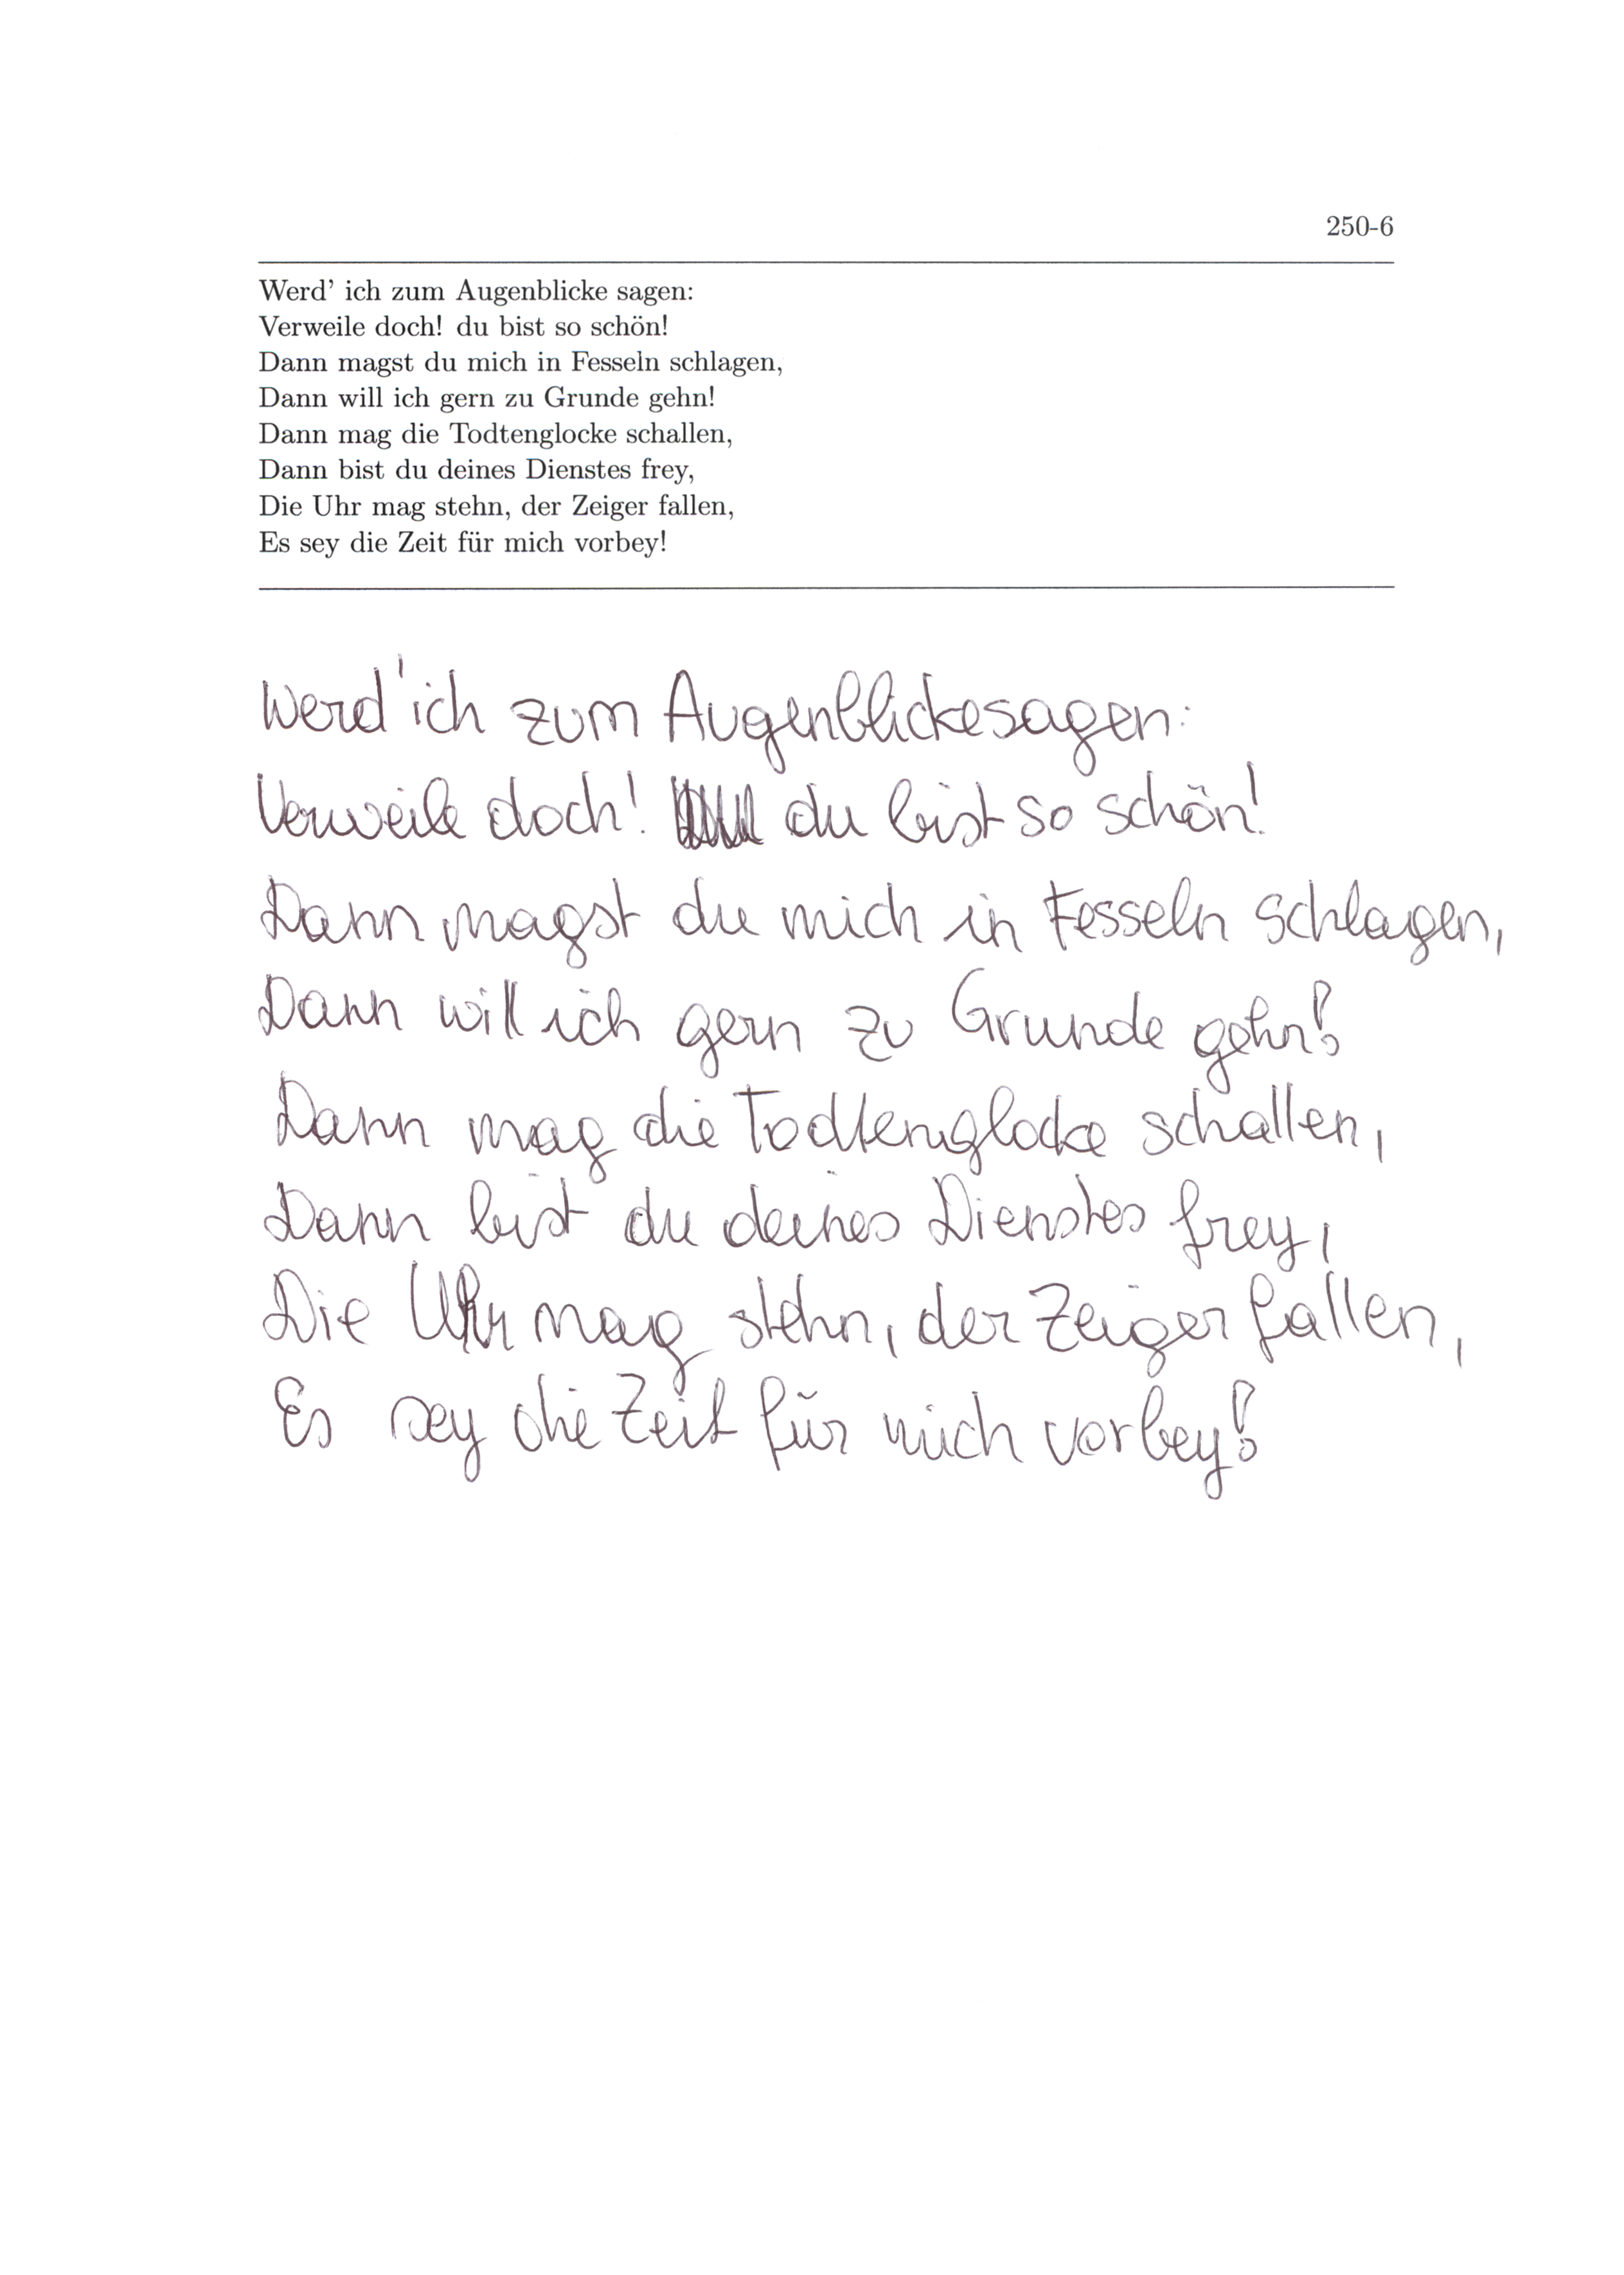 250-6
Werd' ich zum Augenblicke sagen:
Verweile doch! du bist so schön!
Dann magst du mich in Fesseln schlagen,
Dann will ich gern zu Grunde gehn!
Dann mag die Todtenglocke schallen,
Dann bist du deines Dienstes frey,
Die Uhr mag stehn, der Zeiger fallen,
Es sey die Zeit für mich vorbey!
Werd' ich zum Augenblickesagen:
Verweile doch! du bist so schön!
Dann magst du mich in Fesseln schlagen,
Dann will ich gern zu Grunde gehn!
Dann mag die Todtenglocke schallen,
Dann bist du deines Dienstes frey,
Die Uhr mag stehn, der Zeiger fallen,
Es sey die Zeit für mich vorbey!